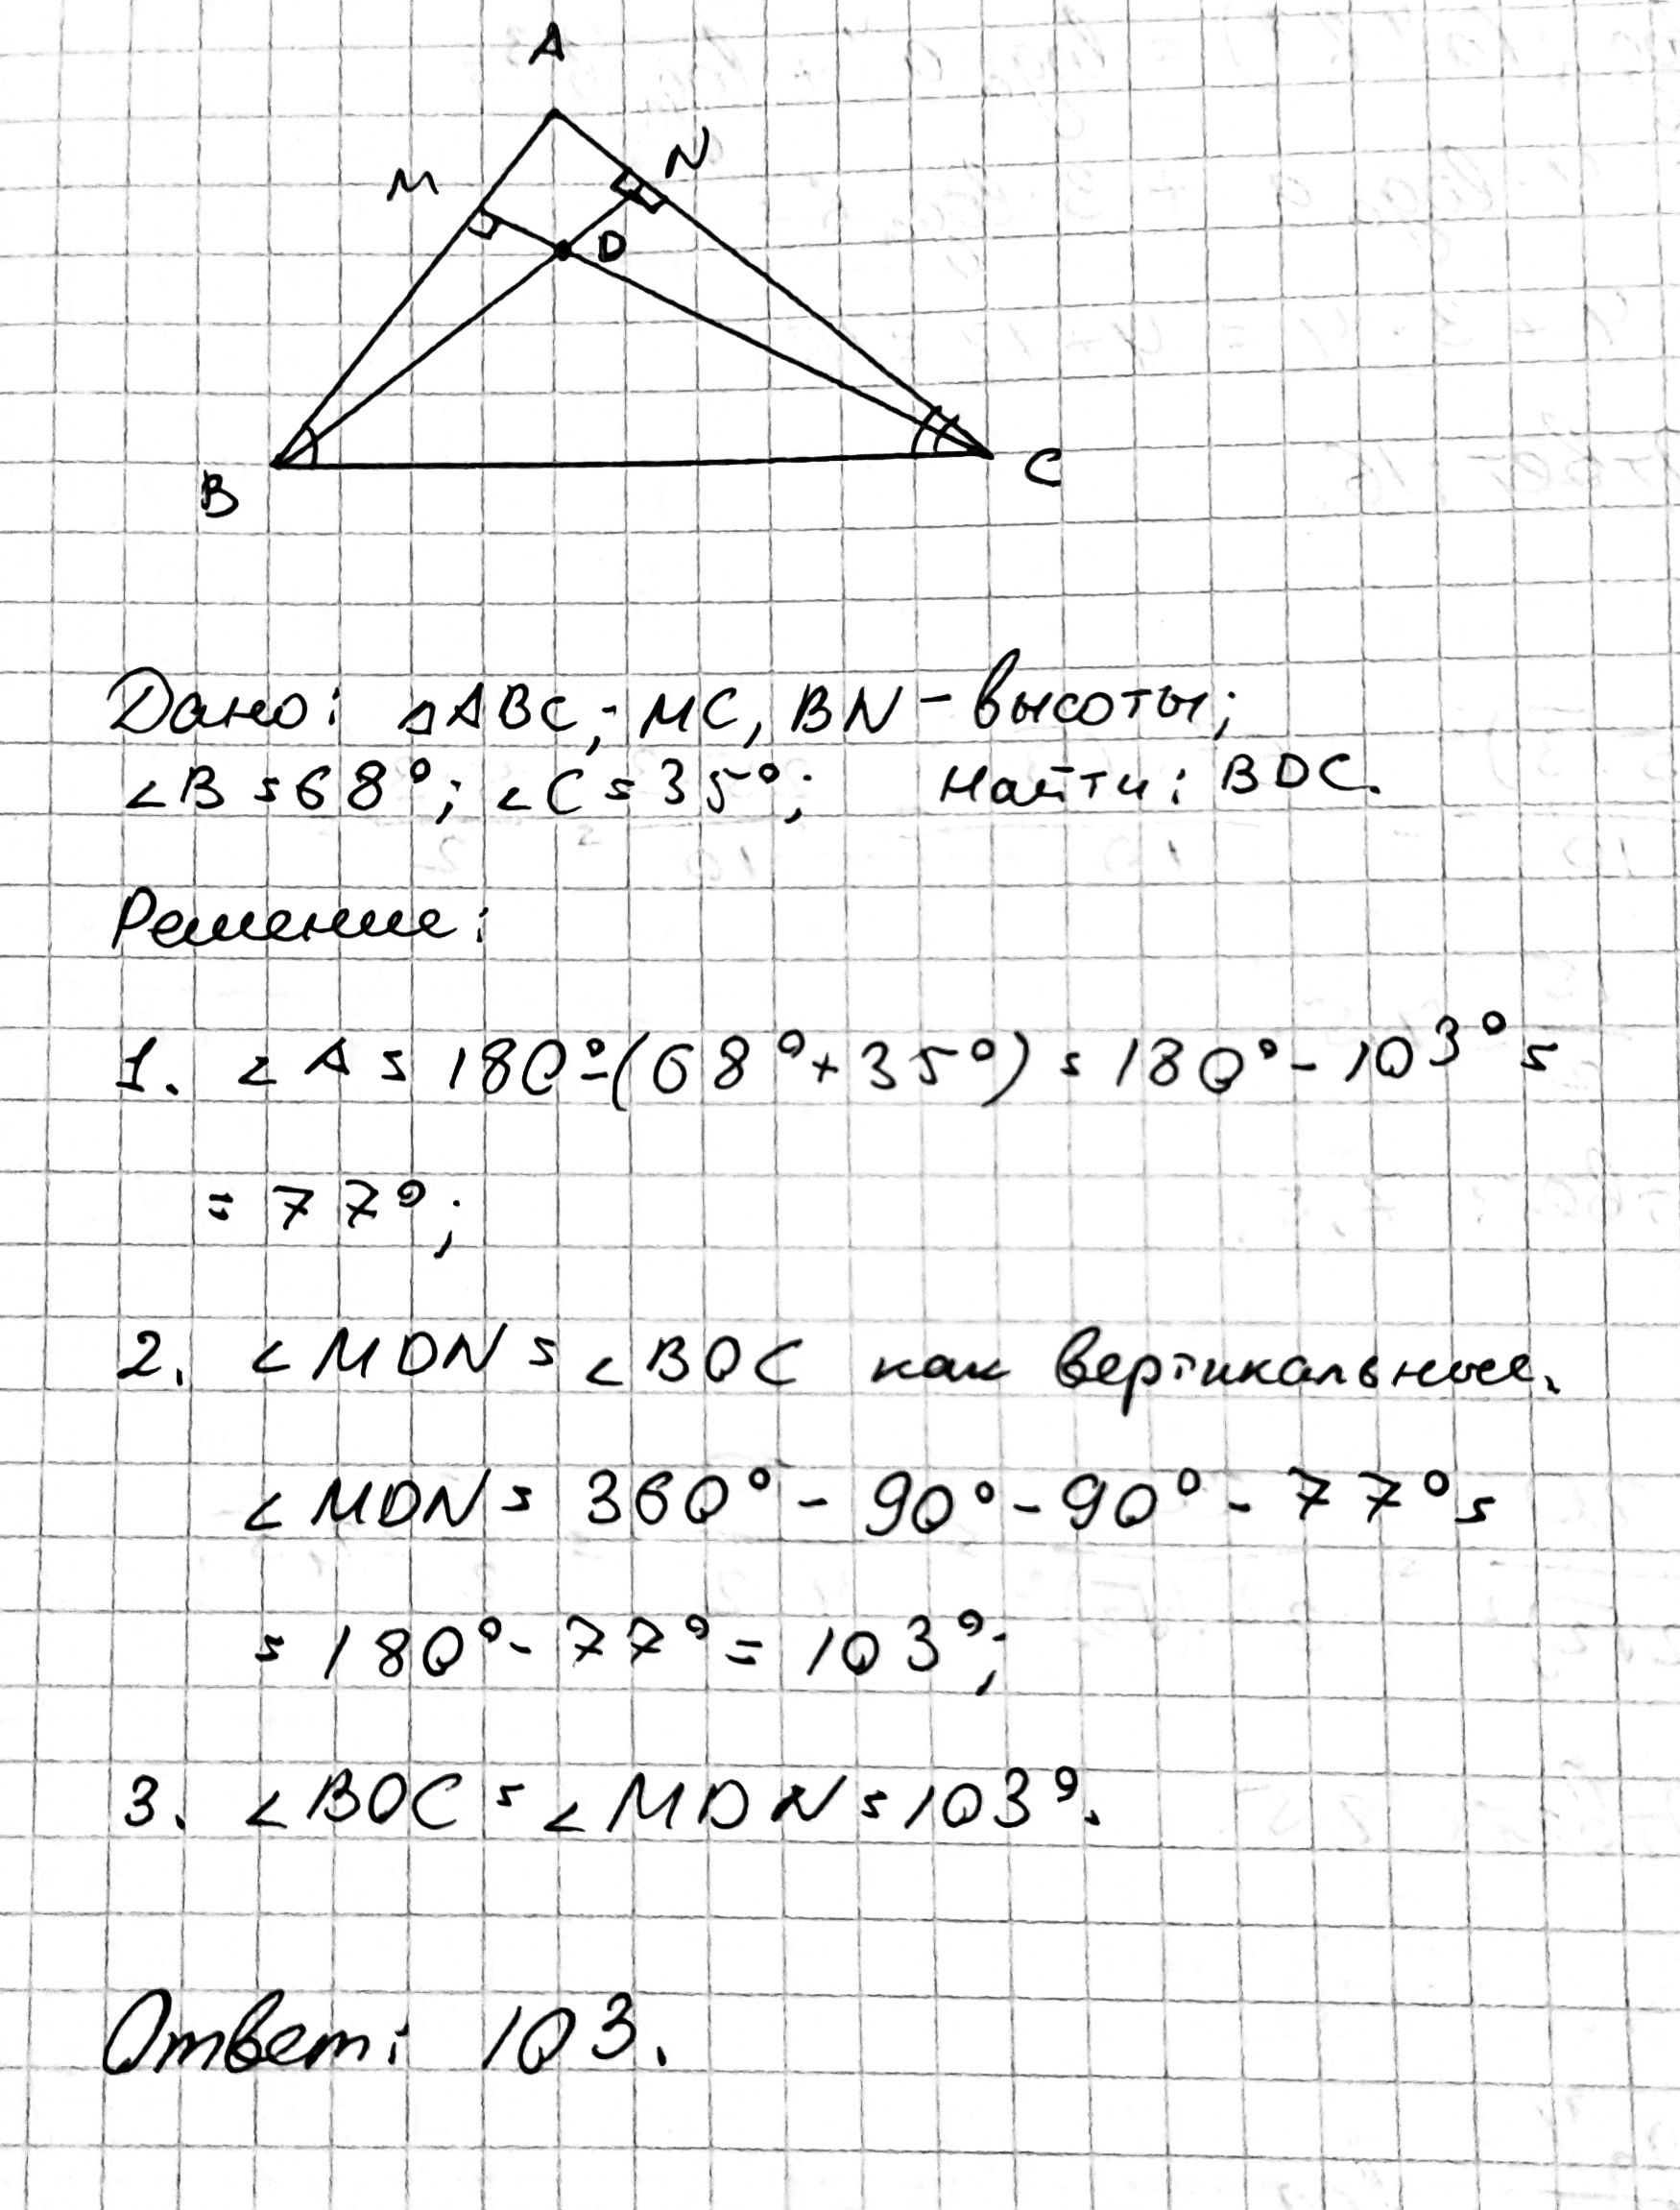 A
M
N
D
B
C
Дано: △ABC; MC, BN - высоты;
∠B = 68°; ∠C = 35°; Найти: BDC.
Решение:
1. ∠A = 180° - (68° + 35°) = 180° - 103° =
= 77°;
2. ∠MDN = ∠BDC как вертикальные.
∠MDN = 360° - 90° - 90° - 77° =
= 180° - 77° = 103°;
3. ∠BDC = ∠MDN = 103°.
Ответ: 103.